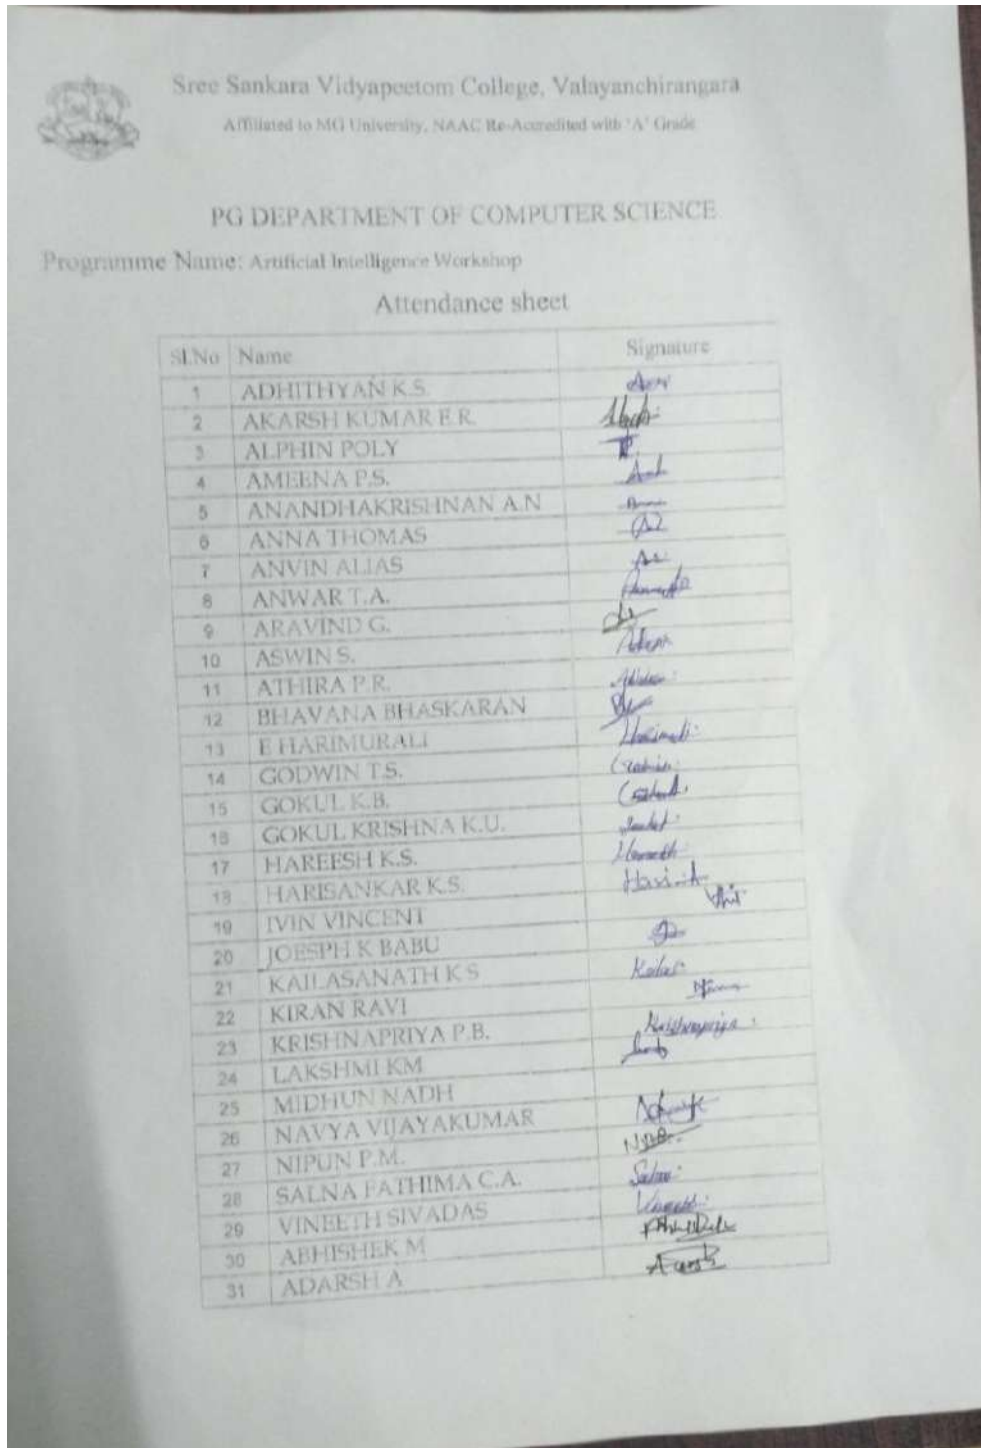 Sree Sankara Vidyapeetom College, Valayanchirangara
Affiliated to MG University, NAAC Re-Accredited with 'A' Grade
PG DEPARTMENT OF COMPUTER SCIENCE
Programme Name: Artificial Intelligence Workshop
Attendance sheet
Sl.No Name Signature
1 ADHITHYAN K.S.
2 AKARSH KUMAR E.R.
3 ALPHIN POLY
4 AMEENA P.S.
5 ANANDHAKRISHNAN A.N
6 ANNA THOMAS
7 ANVIN ALIAS
8 ANWAR T.A.
9 ARAVIND G.
10 ASWIN S.
11 ATHIRA P.R.
12 BHAVANA BHASKARAN
13 E HARIMURALI
14 GODWIN T.S.
15 GOKUL K.B.
16 GOKUL KRISHNA K.U.
17 HAREESH K.S.
18 HARISANKAR K.S.
19 IVIN VINCENT
20 JOESPH K BABU
21 KAILASANATH K S
22 KIRAN RAVI
23 KRISHNAPRIYA P.B. Krishnapriya
24 LAKSHMI KM
25 MIDHUN NADH
26 NAVYA VIJAYAKUMAR
27 NIPUN P.M.
28 SALNA FATHIMA C.A.
29 VINEETH SIVADAS
30 ABHISHEK M
31 ADARSH A